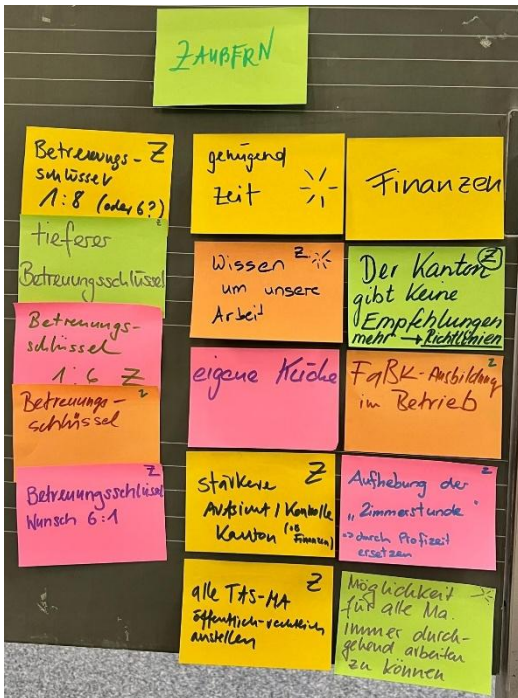 ZAUBERN
Betreuungs- Z
schlüssel
1:8 (oder 6?)
tieferer z
Betreuungsschlüssel
Betreuungs-
schlüssel
1:6 Z
Betreuungs- z
schlüssel
Betreuungsschlüssel z
Wunsch 6:1
genügend
Zeit
Wissen z
um unsere
Arbeit
eigene Küche
Stärkere Z
Aufsicht / Kontrolle
Kanton (ob
Finanzen)
alle TAS-MA Z
öffentlich-rechtlich
anstellen
Finanzen
Der Kanton Z
gibt keine
Empfehlungen
mehr → Richtlinien
FaBK-Ausbildung z
im Betrieb
Aufhebung der z
„Zimmerstunde"
⇒ durch Profizeit
ersetzen
Möglichkeit
für alle Ma.
immer durch-
gehend arbeiten
zu können